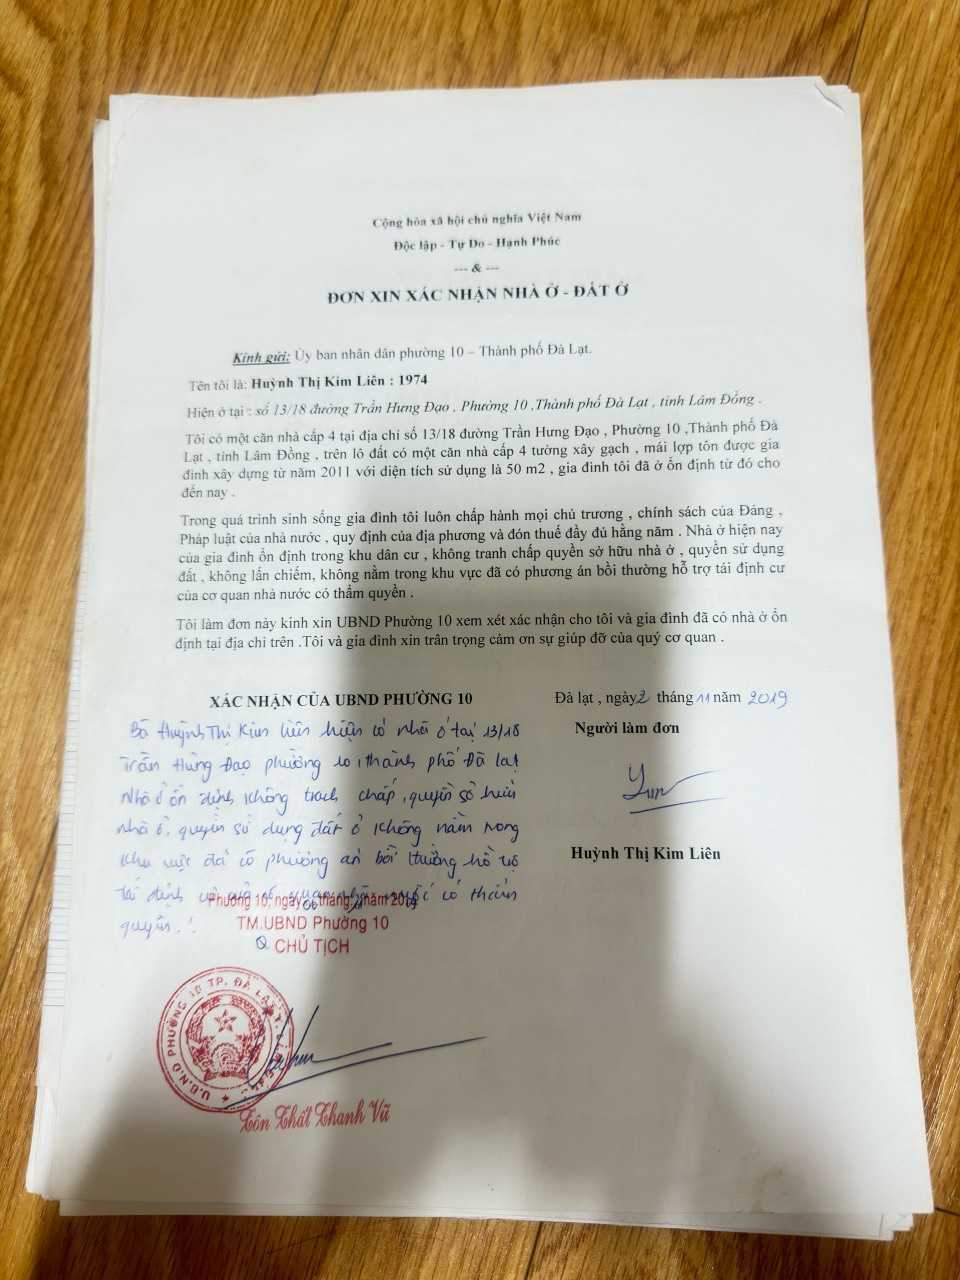 Cộng hòa xã hội chủ nghĩa Việt Nam
Độc lập - Tự Do - Hạnh Phúc
--- & ---
ĐƠN XIN XÁC NHẬN NHÀ Ở - ĐẤT Ở
Kính gửi: Ủy ban nhân dân phường 10 – Thành phố Đà Lạt.
Tên tôi là: Huỳnh Thị Kim Liên : 1974
Hiện ở tại : số 13/18 đường Trần Hưng Đạo , Phường 10 ,Thành phố Đà Lạt , tỉnh Lâm Đồng .
Tôi có một căn nhà cấp 4 tại địa chỉ số 13/18 đường Trần Hưng Đạo , Phường 10 ,Thành phố Đà
Lạt , tỉnh Lâm Đồng , trên lô đất có một căn nhà cấp 4 tường xây gạch , mái lợp tôn được gia
đình xây dựng từ năm 2011 với diện tích sử dụng là 50 m2 , gia đình tôi đã ở ổn định từ đó cho
đến nay .
Trong quá trình sinh sống gia đình tôi luôn chấp hành mọi chủ trương , chính sách của Đảng ,
Pháp luật của nhà nước , quy định của địa phương và đón thuế đầy đủ hằng năm . Nhà ở hiện nay
của gia đình ổn định trong khu dân cư , không tranh chấp quyền sở hữu nhà ở , quyền sử dụng
đất , không lấn chiếm, không nằm trong khu vực đã có phương án bồi thường hỗ trợ tái định cư
của cơ quan nhà nước có thẩm quyền .
Tôi làm đơn này kính xin UBND Phường 10 xem xét xác nhận cho tôi và gia đình đã có nhà ở ổn
định tại địa chỉ trên .Tôi và gia đình xin trân trọng cảm ơn sự giúp đỡ của quý cơ quan .
XÁC NHẬN CỦA UBND PHƯỜNG 10
Bà Huỳnh Thị Kim Liên hiện có nhà ở tại 13/18
Trần Hưng Đạo phường 10, thành phố Đà Lạt
Nhà ở ổn định không tranh chấp, quyền sở hữu
nhà ở, quyền sử dụng đất ở không nằm trong
khu vực đã có phương án bồi thường hỗ trợ
tái định cư của cơ quan nhà nước có thẩm
quyền.
Phường 10, ngày 06 tháng năm 2019
TM.UBND Phường 10
CHỦ TỊCH
U.B.N.D PHƯỜNG 10 TP. ĐÀ LẠT
Tôn Thất Thanh Vũ
Đà lạt , ngày 2 tháng 11 năm 2019
Người làm đơn
Huỳnh Thị Kim Liên